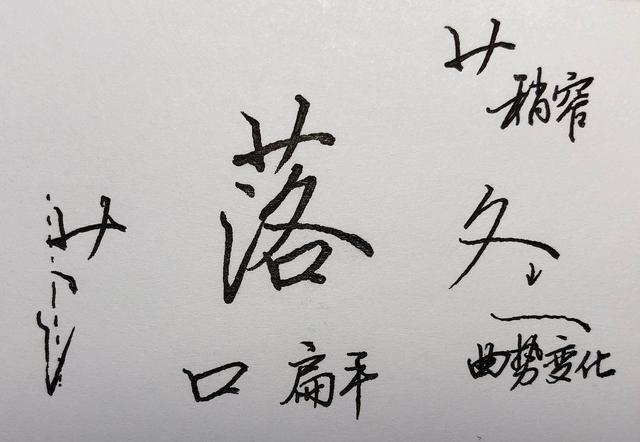 艹
稍窄
落
夂
口 扁平
曲势变化